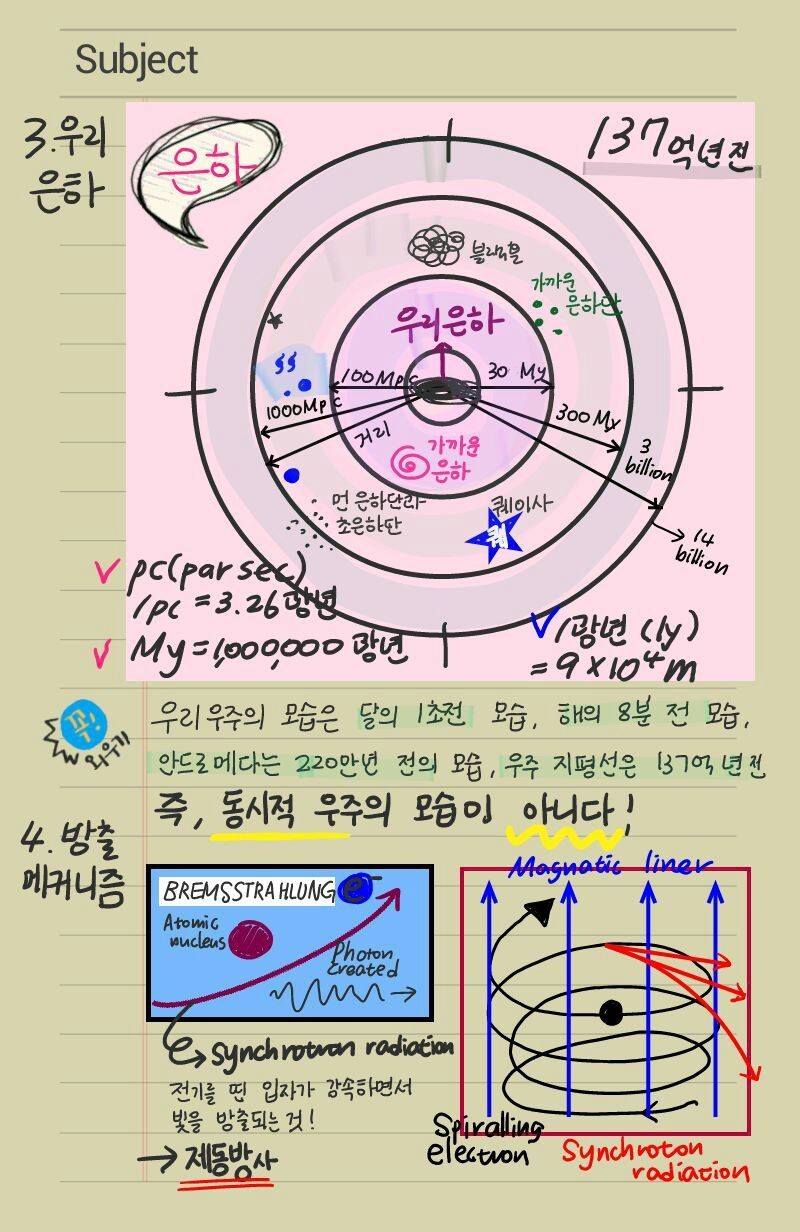 Subject
3. 우리
은하
은하
137억년전
블랙홀
가까운
은하단
우리은하
100Mpc
30 My
1000Mpc
거리
300 My
3
billion
가까운
은하
먼 은하단과
초은하단
퀘이사
퀘
14
billion
pc(par sec)
1pc = 3.26 광년
My = 1,000,000 광년
1광년 (ly)
= 9 × 10⁴ m
꼭!
외우기
우리 우주의 모습은 달의 1초전 모습, 해의 8분 전 모습,
안드로메다는 220만년 전의 모습, 우주 지평선은 137억 년전
즉, 동시적 우주의 모습이 아니다!
4. 방출
메커니즘
BREMSSTRAHLUNG
e-
Atomic
nucleus
Photon
created
Synchrotron radiation
전기를 띤 입자가 감속하면서
빛을 방출되는 것!
→ 제동방사
Magnatic liner
Spiralling
electron
Synchroton
radiation